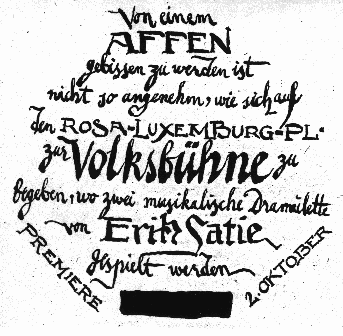 Von einem
AFFEN
gebissen zu werden ist
nicht so angenehm, wie sich auf
den ROSA-LUXEMBURG-PL.
zur Volksbühne zu
begeben, wo zwei musikalische Dramulette
von Erik Satie
gespielt werden
PREMIERE
2. OKTOBER